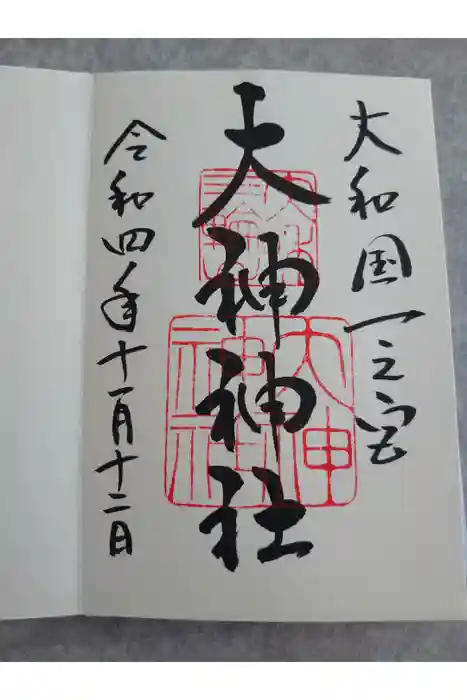 大和国一之宮
大神神社
令和四年十一月十二日
大神
神社